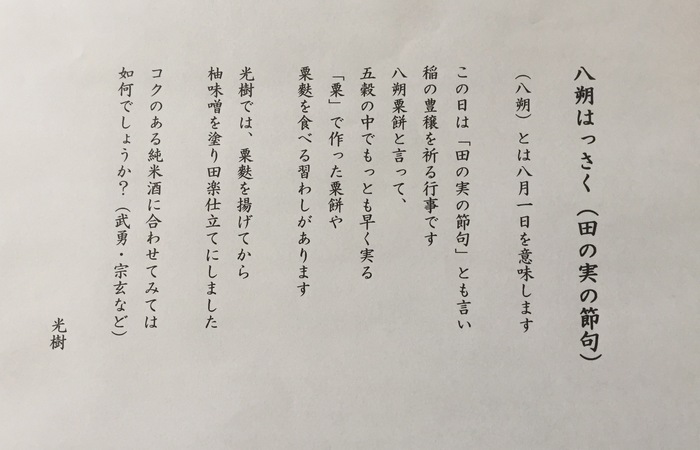 八朔はっさく（田の実の節句）
（八朔）とは八月一日を意味します
この日は「田の実の節句」とも言い
稲の豊穣を祈る行事です
八朔粟餅と言って、
五穀の中でもっとも早く実る
「粟」で作った粟餅や
粟麩を食べる習わしがあります
光樹では、粟麩を揚げてから
柚味噌を塗り田楽仕立てにしました
コクのある純米酒に合わせてみては
如何でしょうか？（武勇・宗玄など）
光樹